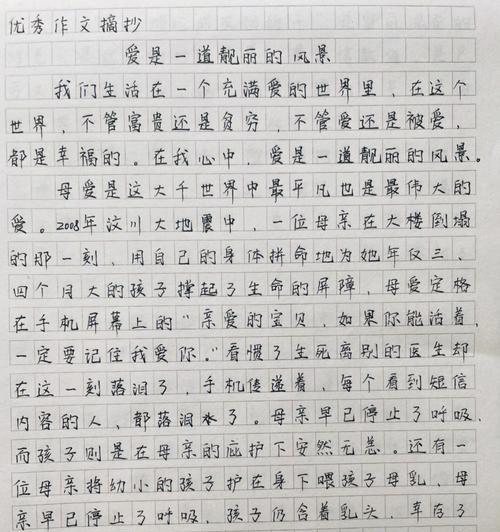 优秀作文摘抄
爱是一道靓丽的风景
我们生活在一个充满爱的世界里，在这个
世界，不管富贵还是贫穷，不管爱还是被爱，
都是幸福的。在我心中，爱是一道靓丽的风景。
母爱是这大千世界中最平凡也是最伟大的
爱。2008年汶川大地震中，一位母亲在大楼倒塌
的那一刻，用自己的身体拼命地为她年仅三、
四个月大的孩子撑起了生命的屏障，母爱定格
在手机屏幕上的“亲爱的宝贝，如果你能活着，
一定要记住我爱你。”看惯了生死离别的医生却
在这一刻落泪了，手机传递着，每个看到短信
内容的人，都落泪水了。母亲早已停止了呼吸，
而孩子则是在母亲的庇护下安然无恙。还有一
位母亲将幼小的孩子护在身下喂孩子母乳，母
亲早已停止了呼吸，孩子仍含着乳头，幸存了